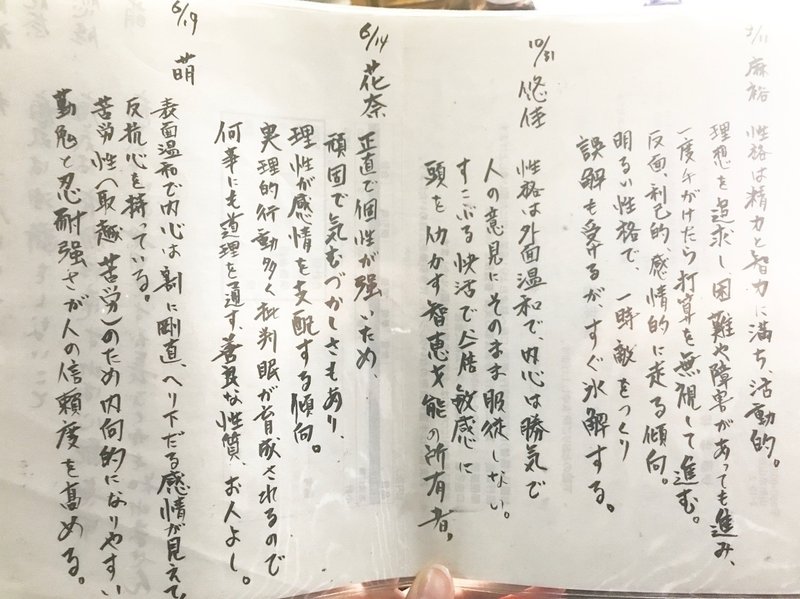 麻裕 性格は精力と智力に満ち、活動的。
理想を追求し、困難や障害があっても進み、
一度手がけたら打算を無視して進む。
反面、利己的、感情的に走る傾向。
明るい性格で、一時敵をつくり
誤解も受けるが、すぐ氷解する。
10/31 悠佳 性格は外面温和で、内心は勝気で
人の意見にそのまま服従しない。
すこぶる快活で 敏感に
頭を働かす智恵才能の所有者。
6/14 花奈 正直で個性が強いため、
頑固で気むづかしさもあり、
理性が感情を支配する傾向。
実理的行動多く批判眼が育成されるので
何事にも道理を通す、善良な性質、お人よし。
6/19 萌 表面温和で内心は割に剛直、へり下だる感情が見えて、
反抗心を持っている。
苦労性(取越苦労)のため内向的になりやすい
勤勉と忍耐強さが人の信頼度を高める。